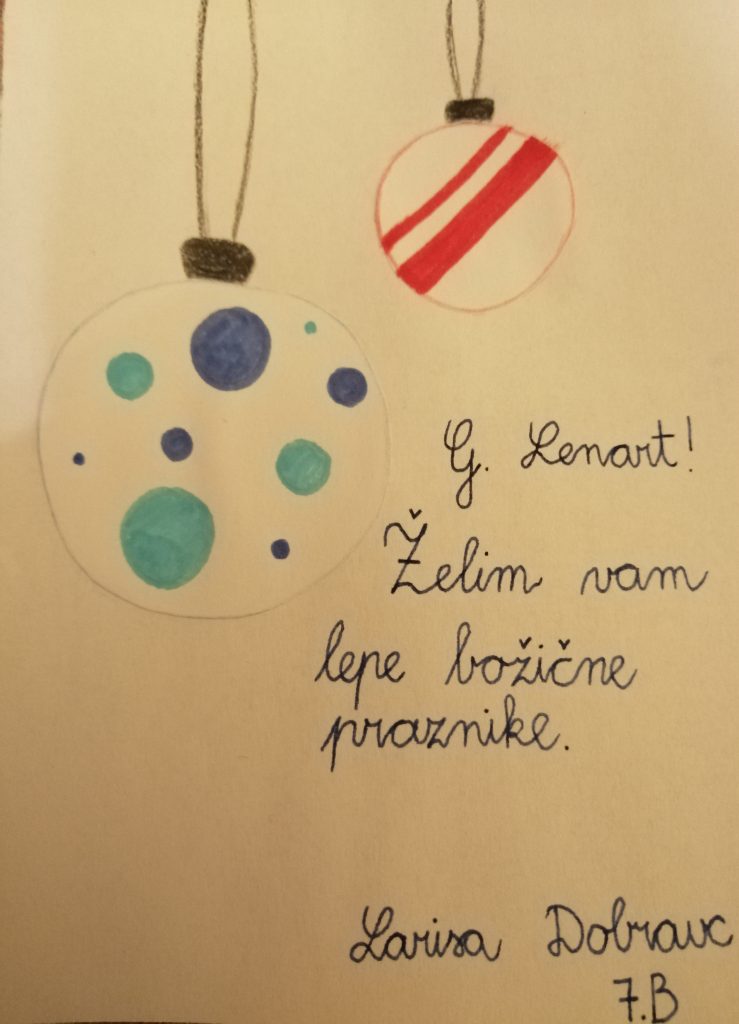 G. Lenart!
Želim vam
lepe božične
praznike.
Larisa Dobravc
7.B